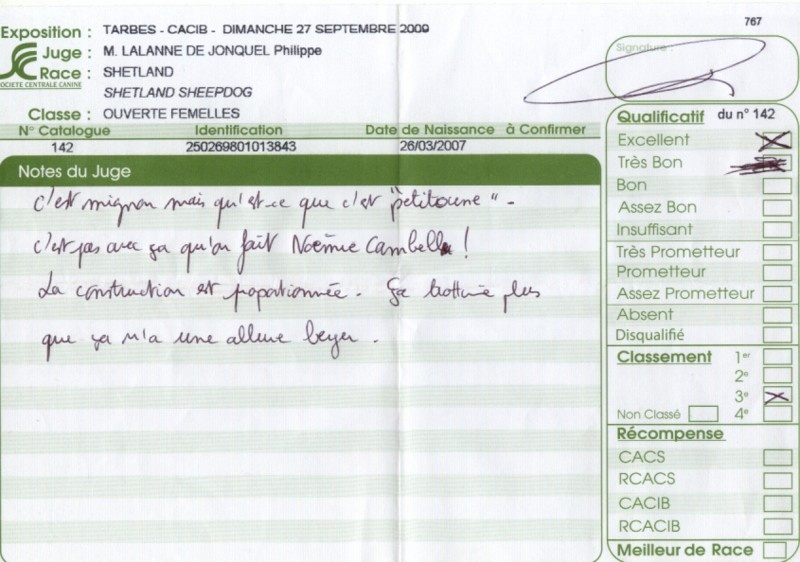 767
Exposition : TARBES - CACIB - DIMANCHE 27 SEPTEMBRE 2009
Juge : M. LALANNE DE JONQUEL Philippe
Race : SHETLAND
SOCIETE CENTRALE CANINE
SHETLAND SHEEPDOG
Classe : OUVERTE FEMELLES
N° Catalogue Identification Date de Naissance à Confirmer
142 250269801013843 26/03/2007
Notes du Juge
c'est mignon mais qu'est-ce que c'est "petitoune" -
c'est pas avec ça qu'on fait Noëmie Cambell !
La construction est propationnée. ça trottine plus
que ça n'a une allure berger.
Signature :
Qualificatif du n° 142
Excellent
Très Bon
Bon
Assez Bon
Insuffisant
Très Prometteur
Prometteur
Assez Prometteur
Absent
Disqualifié
Classement 1er
2e
3e
Non Classé 4e
Récompense
CACS
RCACS
CACIB
RCACIB
Meilleur de Race